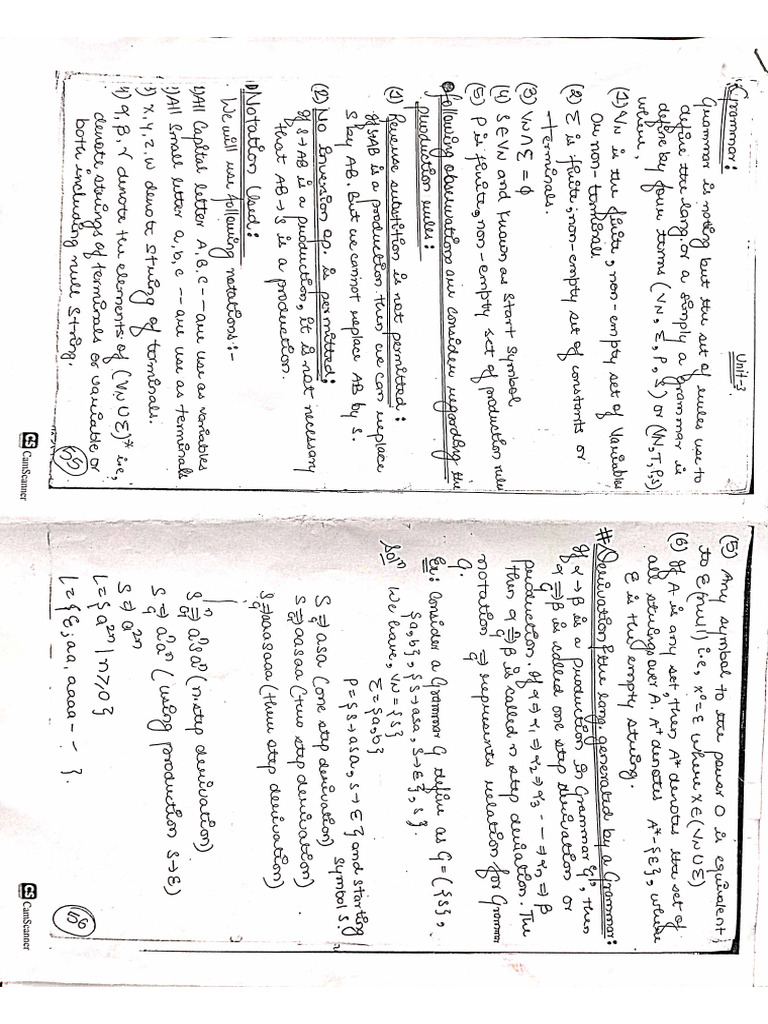 Unit-3.
Grammar:
Grammar is noting but the set of rules use to
define the lang. or a simply a grammar is
define by four terms (VN, Σ, P, S) or (VN,T,P,S)
where,
(1) VN is the finite, non-empty set of Variables
or non-terminal
(2) Σ is finite, non-empty set of constants or
terminals.
(3) VN∩Σ = ϕ
(4) S∈VN and known as start symbol
(5) P is finite, non-empty set of production rules
following observations are consider regarding the
production rules:
(1) Reverse substition is not permitted:
If S→AB is a production then we can replace
S by AB. But we cannot replace AB by S.
(2) No inversion op. is permitted:
If S→AB is a production, it is not necessary
that AB→S is a production.
Notation Used:
We will use following notations:-
1) All Capital letter A, B, C -- are use as variables
2) All Small letter a, b, c -- are use as terminals
3) x, y, z, w denote string of terminals.
4) α, β, γ denote the elements of (VN∪Σ)* i.e,
denote strings of terminals or variable or
both including null string.
55
CS CamScanner
(5) Any symbol to the power 0 is equivalent
to Σ(null) i.e, x⁰=Σ where x∈(VN∪Σ)
(6) If A is any set, then A* denotes the set of
all strings over A. A⁺ denotes A*-{Σ}, where
Σ is the empty string.
# Derivation & the lang. generated by a Grammar:
If α→β is a production in Grammar G, then
α ⇒G β is called one step derivation or
production. If α⇒α1⇒α2⇒α3 --- ⇒αn⇒β
then α ⇒G β is called n step deviation. The
notation ⇒G represents relation for Grammar
G.
Ex: Consider a Grammar G define as G=({S},
{a,b}, {S→asa, S→Σ}, S}.
Solⁿ We have, VN={S}
Σ={a,b}
P={S→asa, S→Σ} and starting
symbol S.
S ⇒G asa (one step derivation)
S ⇒G aasaa (two step derivation)
S ⇒G aaasaaa (three step derivation)
S ⇒G aⁿsaⁿ (n step derivation)
S ⇒G aⁿaⁿ (using production S→Σ)
S ⇒ a²ⁿ
L={a²ⁿ | n≥0}
L={Σ, aa, aaaa -- }.
56
CS CamScanner